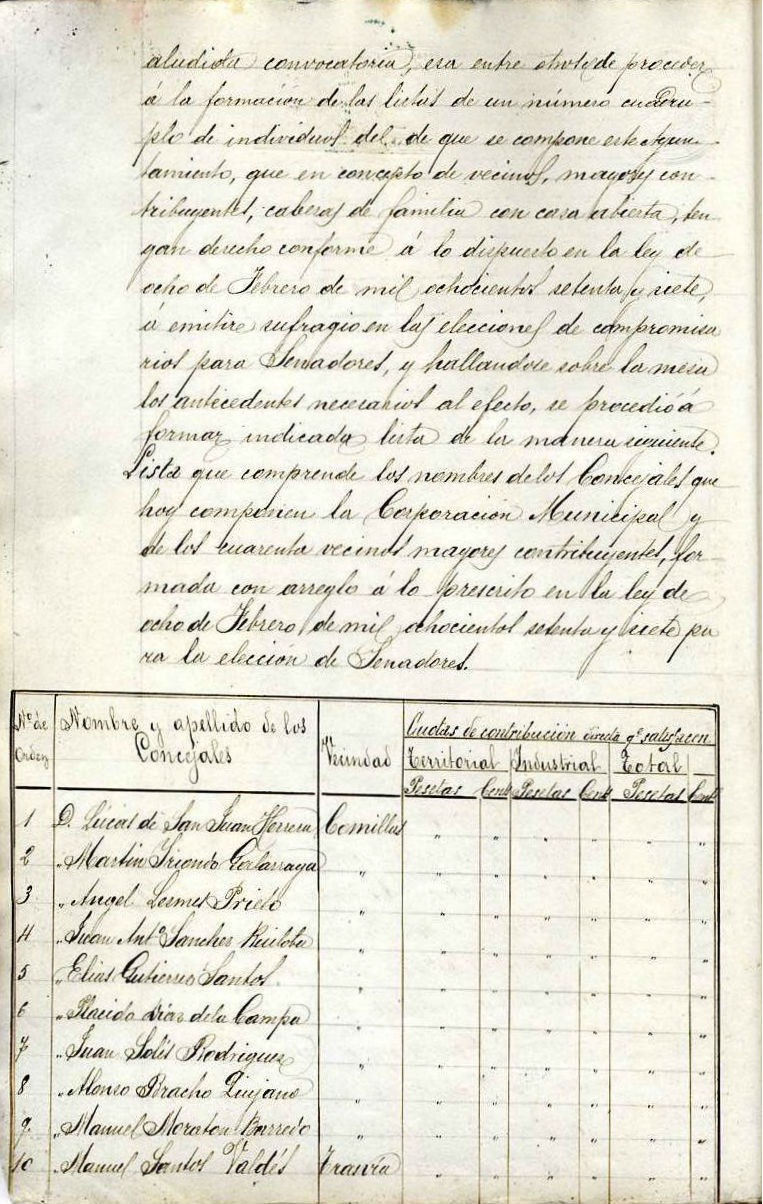 aludida convocatoria, era entre otros de proceder
á la formación de las listas de un número cuádru-
plo de individuos del de que se compone este Ayun-
tamiento, que en concepto de vecinos, mayores con-
tribuyentes, cabezas de familia con casa abierta, ten-
gan derecho conforme á lo dispuesto en la ley de
ocho de Febrero de mil ochocientos setenta y siete,
á emitir sufragio en las elecciones de compromisa
rios para Senadores, y hallandose sobre la mesa
los antecedentes necesarios al efecto, se procedió á
formar indicada lista de la manera siguiente.
Lista que comprende los nombres de los Concejales que
hoy componen la Corporación Municipal y
de los cuarenta vecinos mayores contribuyentes, for-
mada con arreglo á lo prescrito en la ley de
ocho de Febrero de mil ochocientos setenta y siete pa
ra la elección de Senadores.
Nº de Orden
Nombre y apellido de los Concejales
Vecindad
Cuotas de contribución directa qe satisfacen
Territorial Industrial Total
Pesetas Cents Pesetas Cents Pesetas Cents
1 D. Lucas de San Juan Herrera Comillas " " " " " "
2 " Martin Iriondo Galarraga " " " " " " "
3 " Angel Lesmes Prieto " " " " " " "
4 " Juan Antº Sanchez Ruiloba " " " " " " "
5 " Elias Gutierrez Santos " " " " " " "
6 " Placido Diaz de la Campa " " " " " " "
7 " Juan Solis Rodriguez " " " " " " "
8 " Alonso Bracho Quijano " " " " " " "
9 " Manuel Moraton Barredo " " " " " " "
10 " Manuel Santos Valdés Trasvia " " " " " "